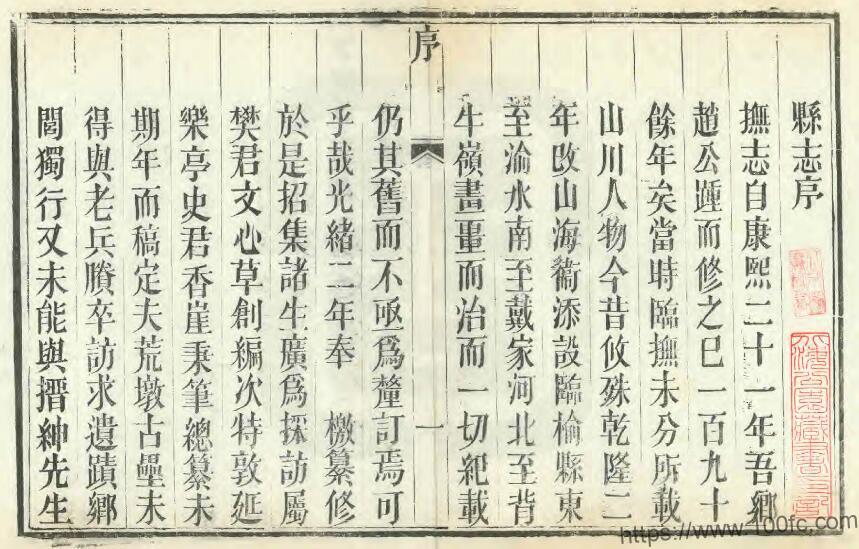 縣志序
撫志自康熙二十一年吾鄉
趙公踵而修之已一百九十
餘年矣當時臨撫未分所載
山川人物今昔攸殊乾隆二
年改山海衞添設臨榆縣東
至渝水南至戴家河北至背
牛嶺畫畺而治而一切紀載
序
一
仍其舊而不亟爲釐訂焉可
乎哉光緒二年奉 檄纂修
於是招集諸生廣爲採訪屬
樊君文心草創編次特敦延
樂亭史君香崖秉筆總纂未
期年而稿定夫荒墩古壘未
得與老兵賸卒訪求遺蹟鄉
閭獨行又未能與搢紳先生
https://www.100fc.com